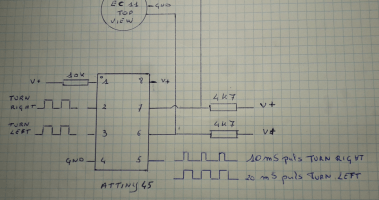 EC 11
TOP
VIEW
GND
V+ 10K 1 8 V+
TURN
RIGHT 2 7 4K7 V+
TURN
LEFT 3 6 4K7 V+
GND 4 5 10 mS puls TURN RIGHT
20 mS puls TURN LEFT
ATTINY 45